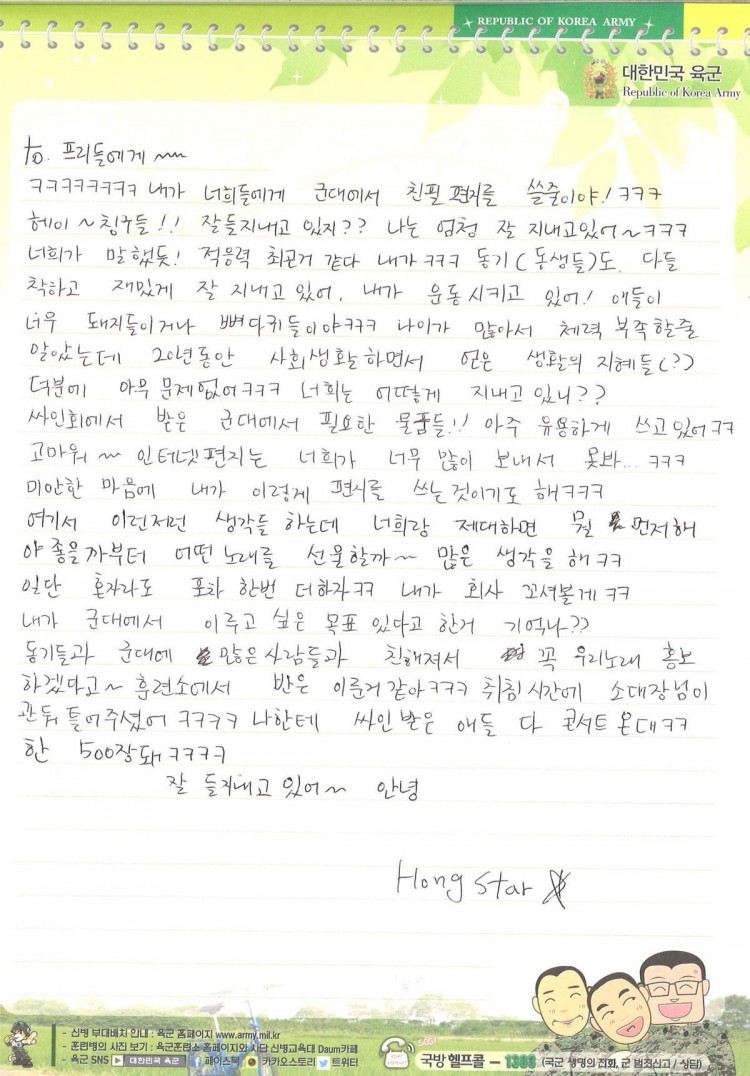 REPUBLIC OF KOREA ARMY
대한민국 육군
Republic of Korea Army
to. 프리들에게 ~~
ㅋㅋㅋㅋㅋㅋㅋㅋ 내가 너희들에게 군대에서 친필 편지를 쓸줄이야! ㅋㅋㅋ
헤이~ 칭구들!! 잘들지내고 있지?? 나는 엄청 잘 지내고있어~ㅋㅋㅋ
너희가 말했듯! 적응력 최곤거 같다 내가ㅋㅋㅋ 동기(동생들)도 다들
착하고 재밌게 잘 지내고 있어. 내가 운동시키고 있어! 애들이
너무 돼지들이거나 뼈다귀들이야ㅋㅋㅋ 나이가 많아서 체력 부족할줄
알았는데 20년동안 사회생활하면서 얻은 생활의 지혜들(?)
덕분에 아무 문제없어ㅋㅋㅋ 너희는 어떻게 지내고 있니??
싸인회에서 받은 군대에서 필요한 물품들!! 아주 유용하게 쓰고있어ㅋㅋ
고마워~ 인터넷편지는 너희가 너무 많이 보내서 못봐... ㅋㅋㅋ
미안한 마음에 내가 이렇게 편지를 쓰는것이기도 해ㅋㅋㅋ
여기서 이런저런 생각들 하는데 너희랑 제대하면 뭘 먼저해
야 좋을까부터 어떤노래를 선물할까~ 많은 생각을 해ㅋㅋ
일단 혼자라도 포차 한번 더하자ㅋㅋ 내가 회사 꼬셔볼게ㅋㅋ
내가 군대에서 이루고 싶은 목표 있다고 한거 기억나??
동기들과 군대에 많은사람들과 친해져서 꼭 우리노래 홍보
하겠다고~ 훈련소에서 반은 이룬거같아ㅋㅋㅋ 취침시간에 소대장님이
관둬 틀어주셨어 ㅋㅋㅋㅋ 나한테 싸인받은 애들 다 콘서트온대ㅋㅋ
한 500장돼ㅋㅋㅋㅋ
잘 들지내고 있어~ 안녕
Hong Star
- 신병 부대배치 안내 : 육군 홈페이지 www.army.mil.kr
- 훈련병의 사진 보기 : 육군훈련소 홈페이지와 사단 신병교육대 Daum카페
- 육군 SNS 대한민국 육군 페이스북 카카오스토리 트위터
국방헬프콜 - 1303 (국군 생명의 전화, 군 범죄신고 / 상담)